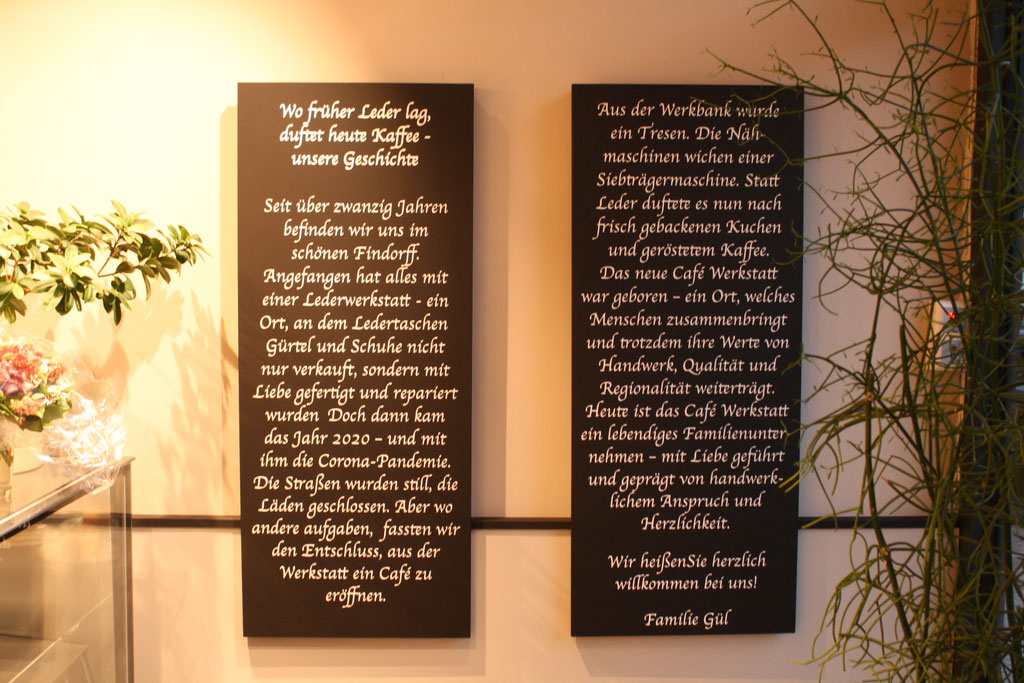 Wo früher Leder lag,
duftet heute Kaffee -
unsere Geschichte
Seit über zwanzig Jahren
befinden wir uns im
schönen Findorff.
Angefangen hat alles mit
einer Lederwerkstatt - ein
Ort, an dem Ledertaschen
Gürtel und Schuhe nicht
nur verkauft, sondern mit
Liebe gefertigt und repariert
wurden Doch dann kam
das Jahr 2020 – und mit
ihm die Corona-Pandemie.
Die Straßen wurden still, die
Läden geschlossen. Aber wo
andere aufgaben, fassten wir
den Entschluss, aus der
Werkstatt ein Café zu
eröffnen.
Aus der Werkbank wurde
ein Tresen. Die Näh-
maschinen wichen einer
Siebträgermaschine. Statt
Leder duftete es nun nach
frisch gebackenen Kuchen
und geröstetem Kaffee.
Das neue Café Werkstatt
war geboren – ein Ort, welches
Menschen zusammenbringt
und trotzdem ihre Werte von
Handwerk, Qualität und
Regionalität weiterträgt.
Heute ist das Café Werkstatt
ein lebendiges Familienunter
nehmen – mit Liebe geführt
und geprägt von handwerk-
lichem Anspruch und
Herzlichkeit.
Wir heißenSie herzlich
willkommen bei uns!
Familie Gül